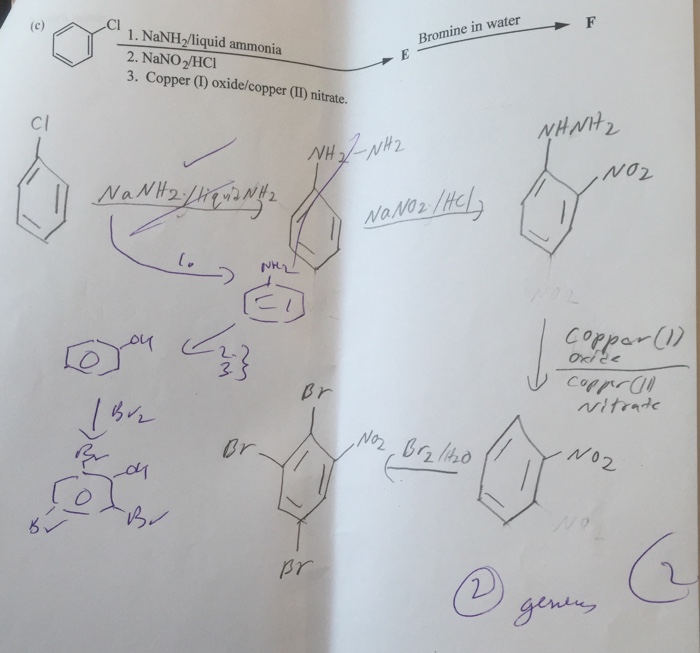 (c)
Cl
1. NaNH₂/liquid ammonia
2. NaNO₂/HCl
3. Copper (I) oxide/copper (II) nitrate.
E
Bromine in water
F
Cl
NaNH2/liquid NH2
NH2-NH2
NaNO2/HCl
NHNH2
NO2
NO2
1.
NH2
2.
3.
OH
Br2
Br
OH
Br
Br
Coppar (I)
oxide
Coppr (II)
Nitrate
NO2
NO
Br2/H2O
Br
Br
NO2
Br
2
generus
2